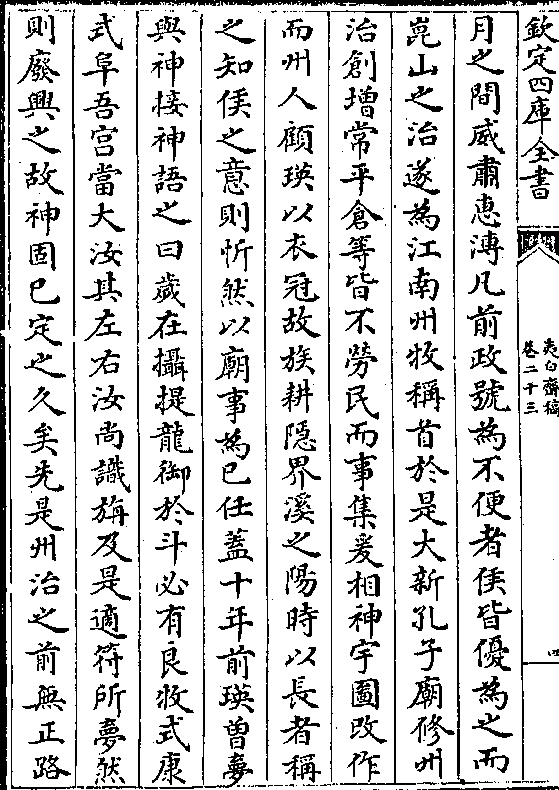 欽定四庫全書
夷白齋稿
卷二十三
四
月之間威肅惠溥凡前政號為不便者侯皆優為之而
崑山之治遂為江南州牧稱首於是大新孔子廟修州
治創增常平倉等皆不勞民而事集爰相神宇圖改作
而州人顧瑛以衣冠故族耕隱界溪之陽時以長者稱
之知侯之意則忻然以廟事為已任蓋十年前瑛曽夢
與神接神語之曰歲在攝提龍御於斗必有良牧式康
式阜吾宫當大汝其左右汝尚識旃及是適符所夢然
則廢興之故神固已定之久矣先是州治之前無正路